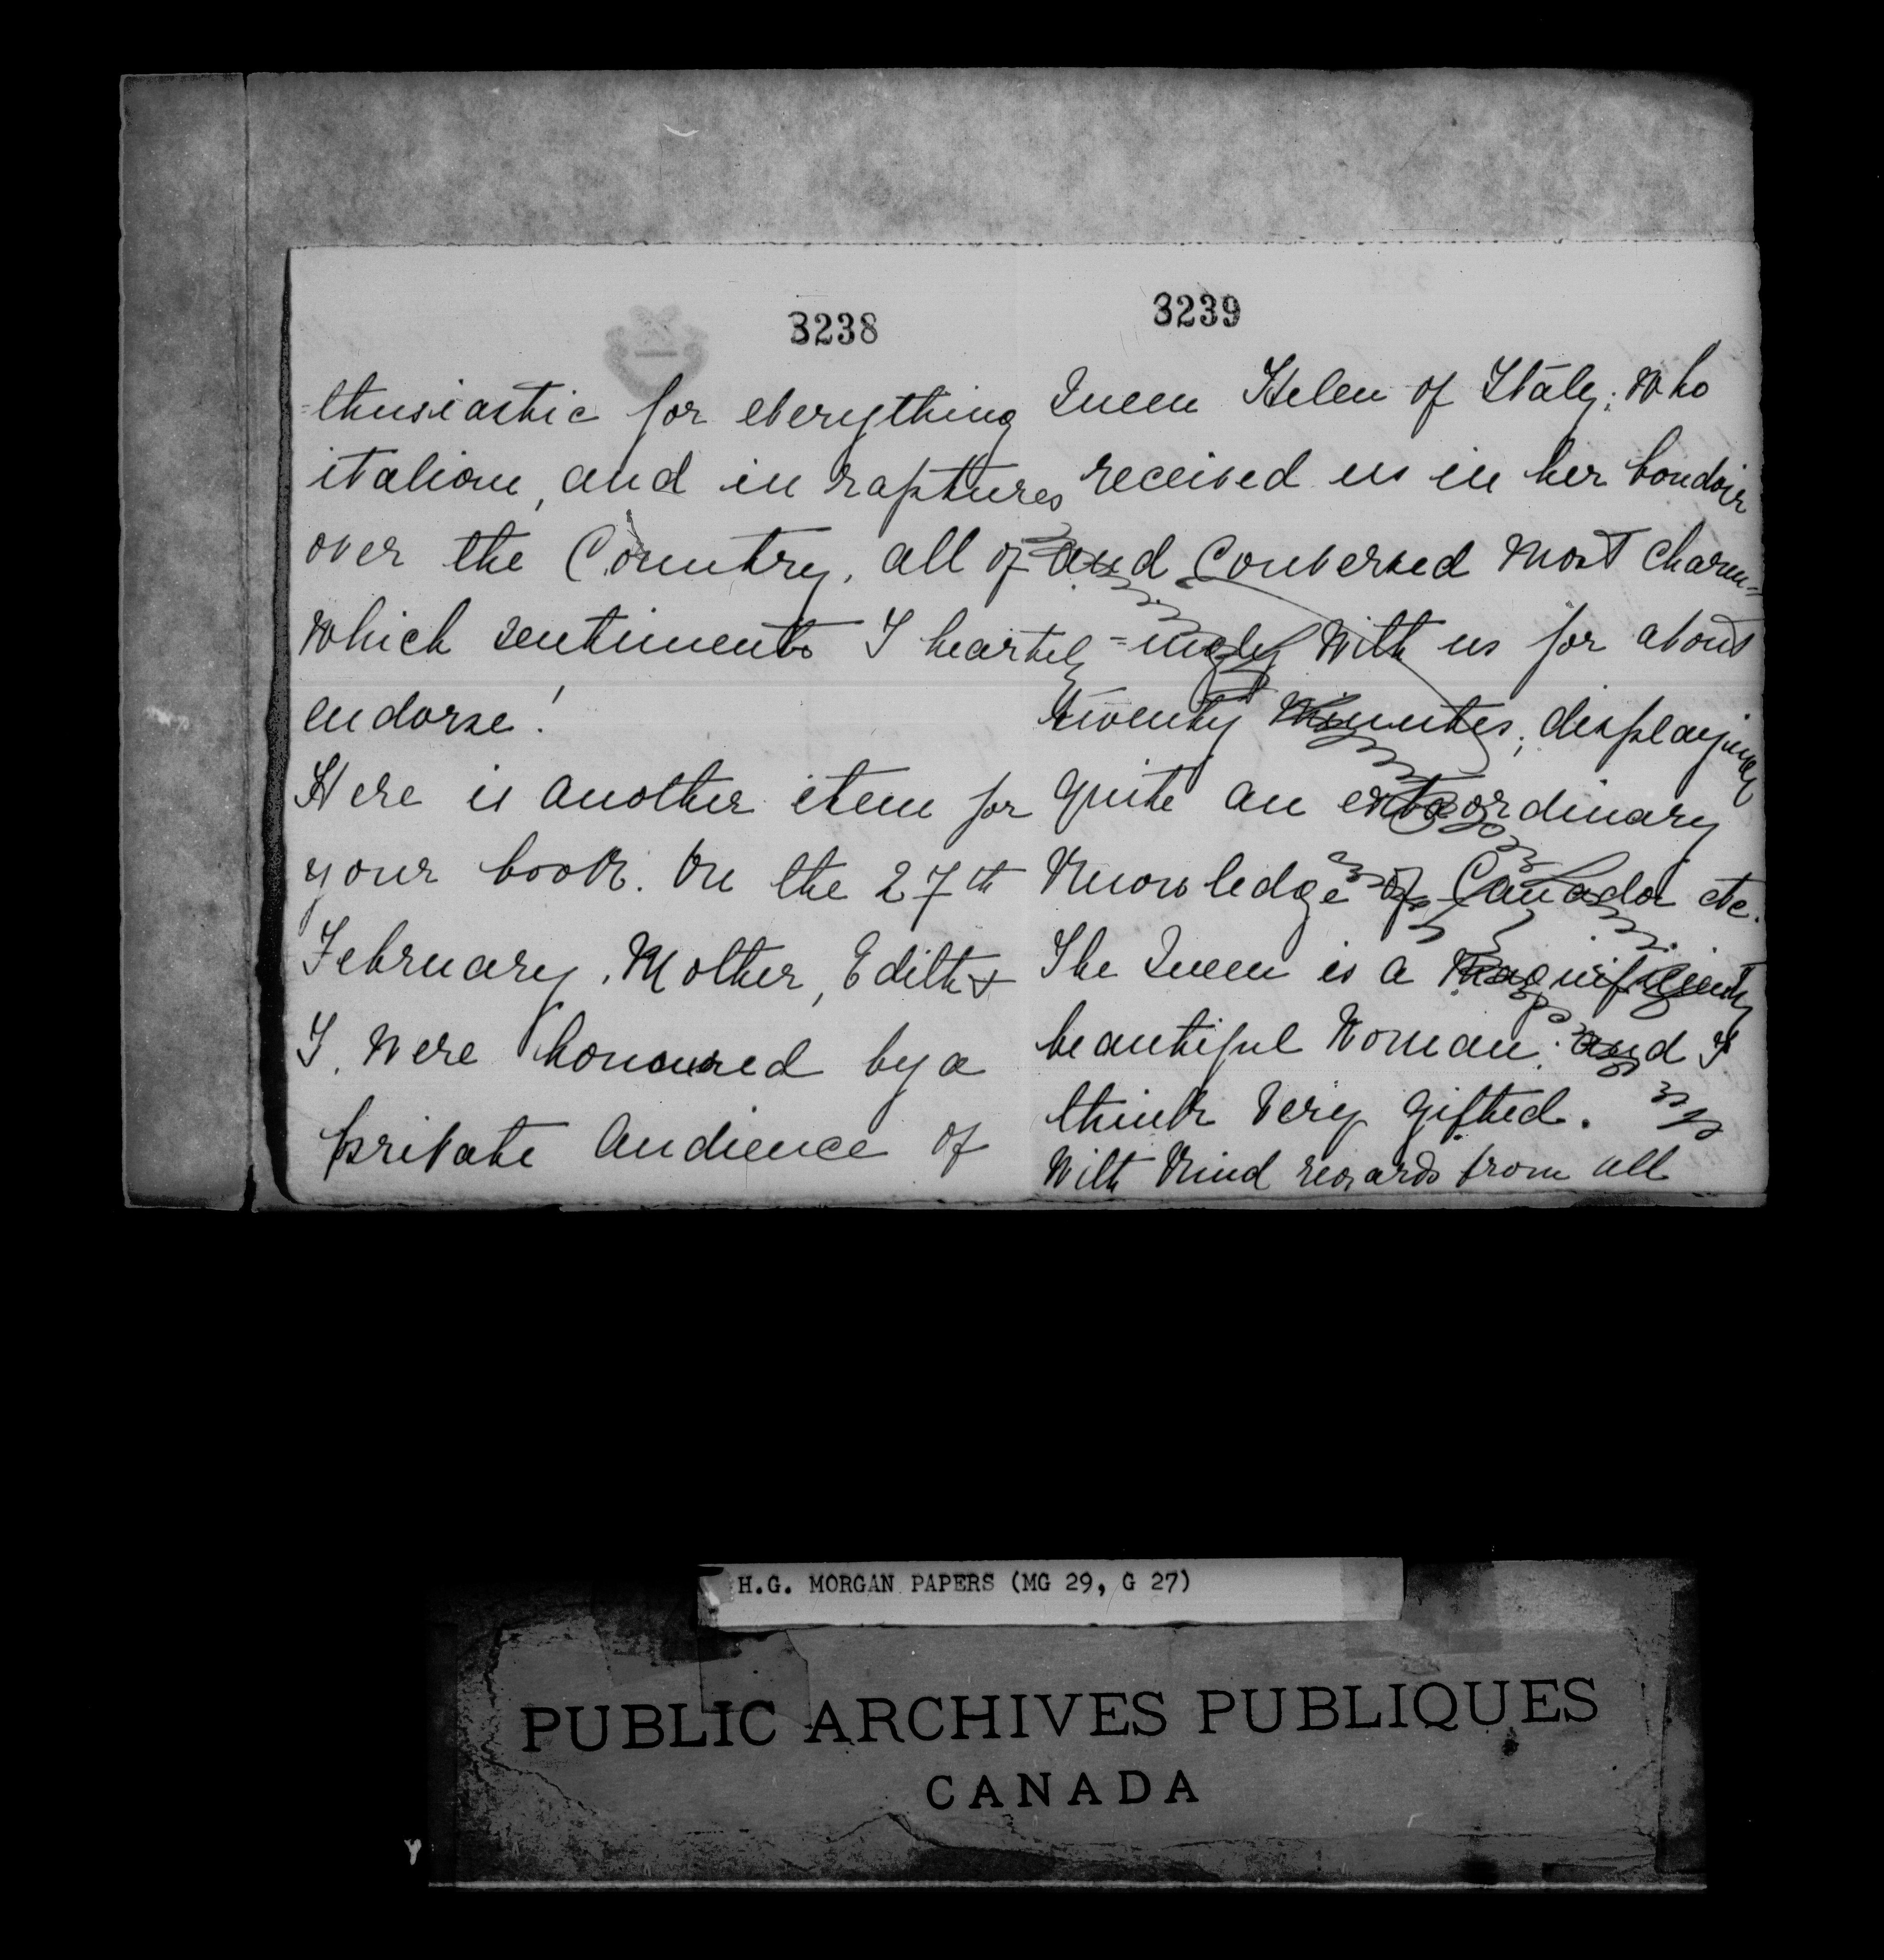 3238
=thusiastic for everything
italian, and in raptures
over the Country, all of
which sentiments I heartily
endorse!
Here is another item for
your book. On the 27th
February, Mother, Edith &
I, were honoured by a
private audience of
3239
Queen Helen of Italy; who
received us in her boudoir
and conversed most charm=
=ingly with us for about
twenty minutes, displaying
quite an extraordinary
knowledge of Canada etc.
The Queen is a magnificently
beautiful woman, and I
think very gifted.
With kind regards from all
H.G. MORGAN PAPERS (MG 29, G 27)
PUBLIC ARCHIVES PUBLIQUES
CANADA